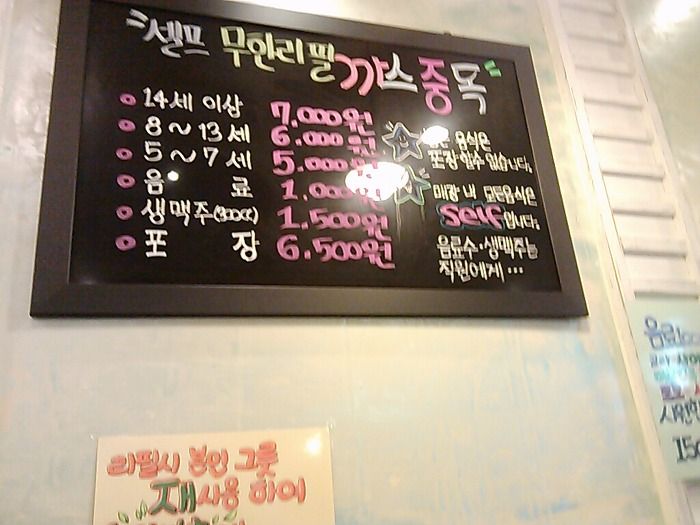 셀프 무한리필 까스 중독
14세 이상 7.000원
8～13세 6.000원
5～7세 5.000원
음료 1.000원
생맥주(300cc) 1.500원
포장 6.500원
음식은
포장 하실수 없습니다.
매장 내 모든음식은
self입니다.
음료수·생맥주는
직원에게…
리필시 본인 그릇
재사용 하여
음료
시원한